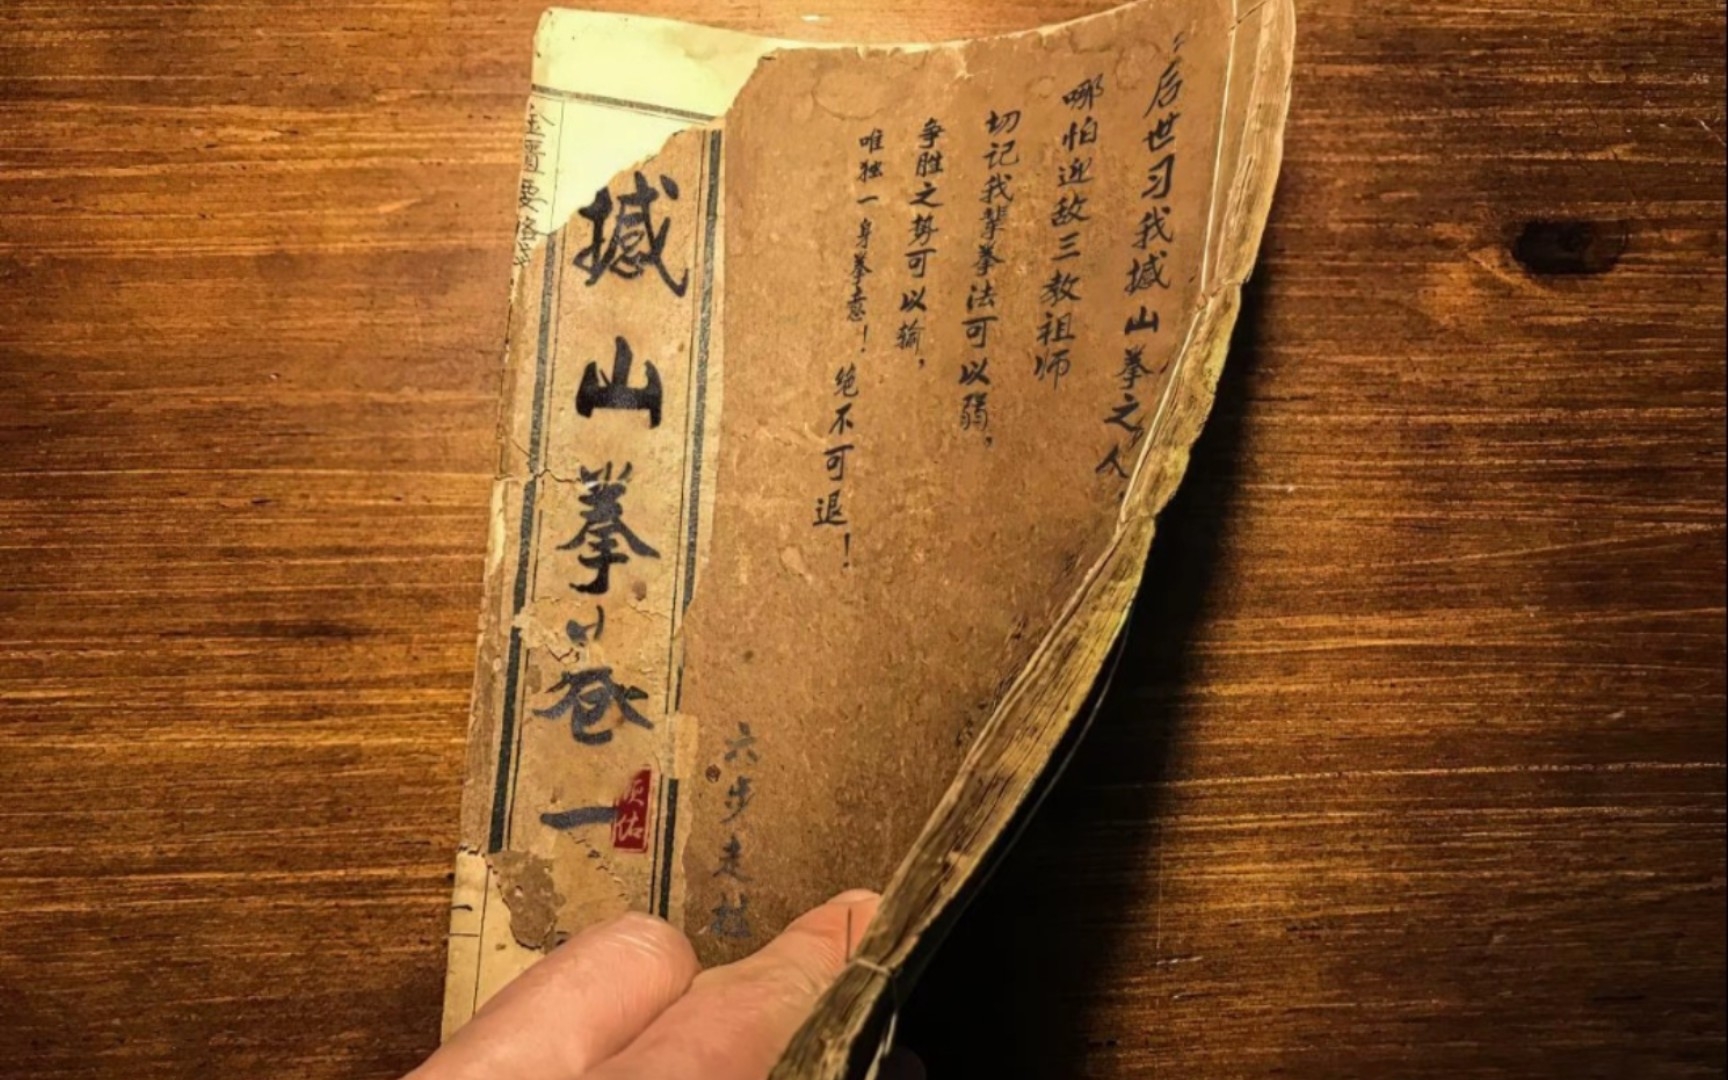 后世习我撼山拳之人，
哪怕迎敌三教祖师
切记我辈拳法可以弱，
争胜之势可以输，
唯独一身拳意！
绝不可退！
六步走桩
撼山拳卷一
顾佑
金匮要略